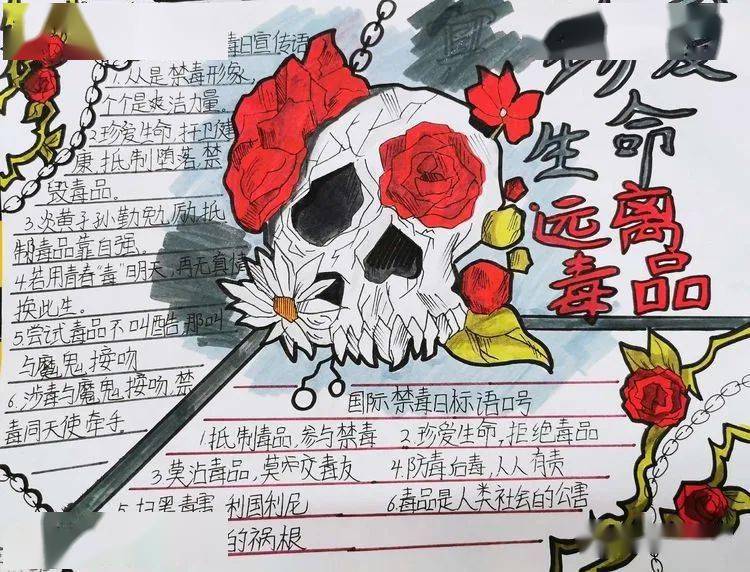 毒日宣传语
1.从是禁毒形象,
个个是爽洁力量。
2珍爱生命,扞卫健
康,抵制堕落,禁
毁毒品。
3.炎黄子孙勤勉励抵
制毒品靠自强、
4若用青春"毒"明天,再无真情
换此生。
5.尝试毒品不叫酷,那叫
与魔鬼接吻
6.涉毒与魔鬼接吻,禁
毒同天使牵手
珍爱
生命
远离
毒品
国际禁毒日标语口号
1抵制毒品,参与禁毒 2珍爱生命,拒绝毒品
3莫沾毒品,莫交毒友 4防毒后毒,人人有责
5扫黑毒害 利国利民 6毒品是人类社会的公害
的祸根